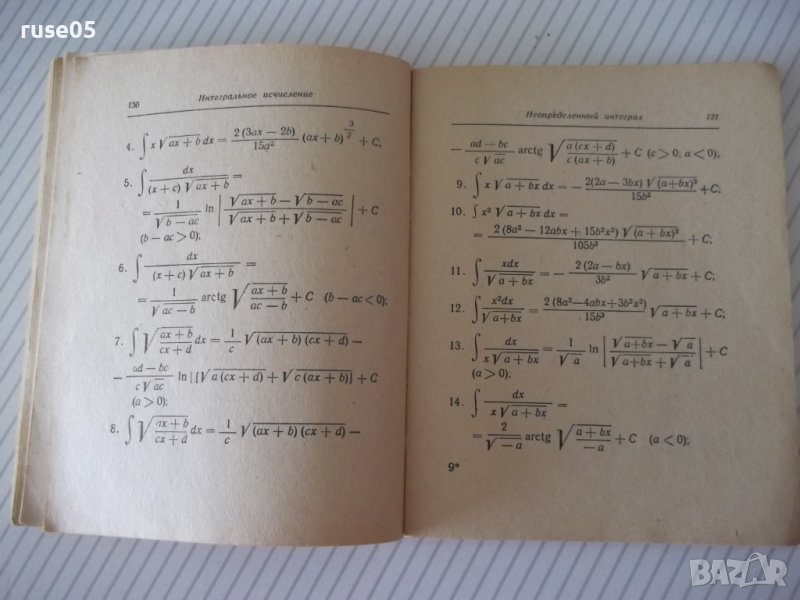 ruse05
130 Интегральное исчисление
4. ∫ x √(ax + b) dx = 2 (3ax — 2b) / 15a² (ax + b)^(3/2) + C;
5. ∫ dx / (x + c) √(ax + b) =
= 1 / √(b — ac) ln | (√(ax + b) — √(b — ac)) / (√(ax + b) + √(b — ac)) | + C
(b — ac > 0);
6. ∫ dx / (x + c) √(ax + b) =
= 1 / √(ac — b) arctg √((ax + b) / (ac — b)) + C (b — ac < 0);
7. ∫ √((ax + b) / (cx + d)) dx = 1/c √((ax + b) (cx + d)) —
— (ad — bc) / c √ac ln | [√(a (cx + d)) + √(c (ax + b))] | + C
(a > 0);
8. ∫ √((ax + b) / (cx + d)) dx = 1/c √((ax + b) (cx + d)) —
Неопределенный интеграл 131
— (ad — bc) / c √ac arctg √(a (cx + d) / c (ax + b)) + C (c > 0; a < 0);
9. ∫ x √(a + bx) dx = — 2(2a — 3bx) √((a+bx)³) / 15b³ + C;
10. ∫ x² √(a + bx) dx =
= 2 (8a² — 12abx + 15b²x²) √((a + bx)³) / 105b³ + C;
11. ∫ xdx / √(a+bx) = — 2 (2a — bx) / 3b² √(a + bx) + C;
12. ∫ x²dx / √(a+bx) = 2 (8a²—4abx+3b²x²) / 15b³ √(a + bx) + C;
13. ∫ dx / x √(a + bx) = 1 / √a ln | (√(a+bx) — √a) / (√(a+bx) + √a) | + C
(a > 0);
14. ∫ dx / x √(a + bx) =
= 2 / √(—a) arctg √((a + bx) / —a) + C (a < 0);
9*
BAZAR